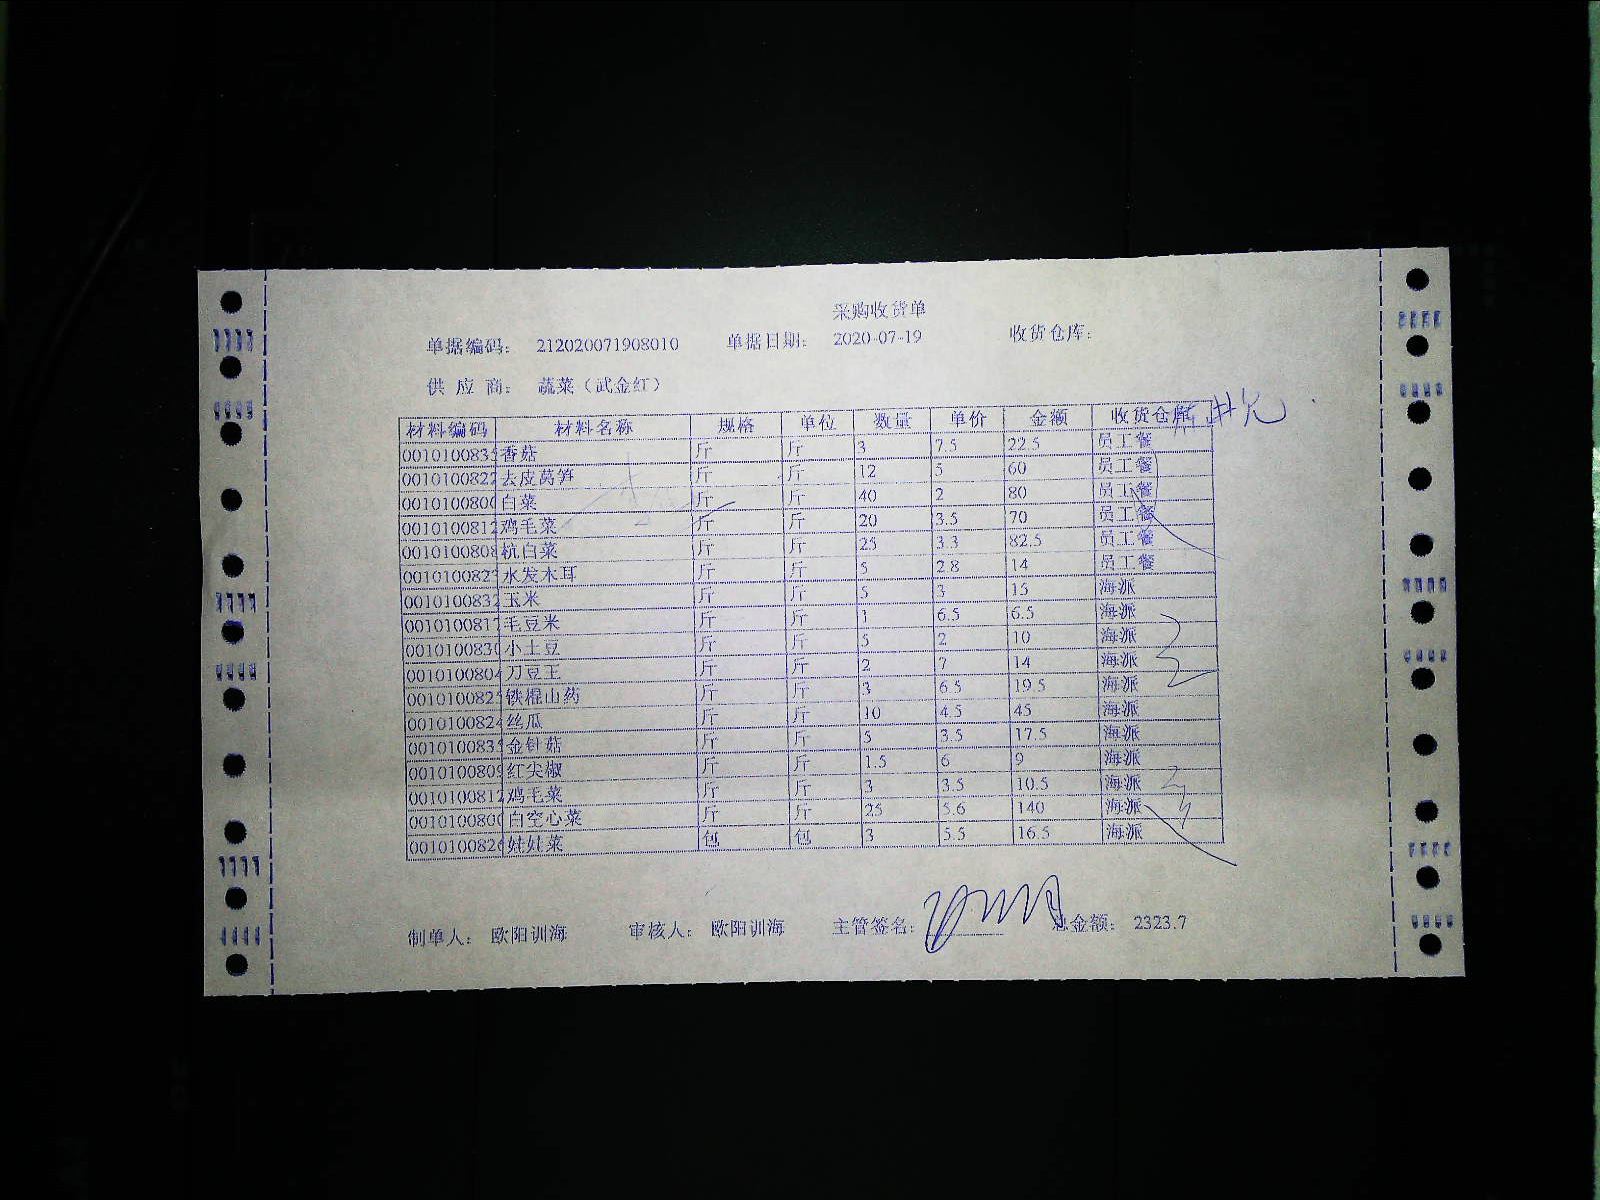 采购收货单
单据编码: 212020071908010 单据日期: 2020-07-19 收货仓库:
供 应 商: 蔬菜（武金红）
材料编码 材料名称 规格 单位 数量 单价 金额 收货仓库
0010100835 香菇 斤 斤 3 7.5 22.5 员工餐
0010100822 去皮莴笋 斤 斤 12 5 60 员工餐
001010080 白菜 斤 斤 40 2 80 员工餐
0010100812 鸡毛菜 斤 斤 20 3.5 70 员工餐
0010100808 杭白菜 斤 斤 25 3.3 82.5 员工餐
001010082 水发木耳 斤 斤 5 2.8 14 员工餐
0010100832 玉米 斤 斤 5 3 15 海派
0010100817 毛豆米 斤 斤 1 6.5 6.5 海派
001010083 小土豆 斤 斤 5 2 10 海派
0010100804 刀豆王 斤 斤 2 7 14 海派
001010082 铁棍山药 斤 斤 3 6.5 19.5 海派
0010100824 丝瓜 斤 斤 10 4.5 45 海派
001010083 金针菇 斤 斤 5 3.5 17.5 海派
0010100809 红尖椒 斤 斤 1.5 6 9 海派
0010100812 鸡毛菜 斤 斤 3 3.5 10.5 海派
001010080 白空心菜 斤 斤 25 5.6 140 海派
0010100826 娃娃菜 包 包 3 5.5 16.5 海派
制单人: 欧阳训海 审核人: 欧阳训海 主管签名: 总金额: 2323.7